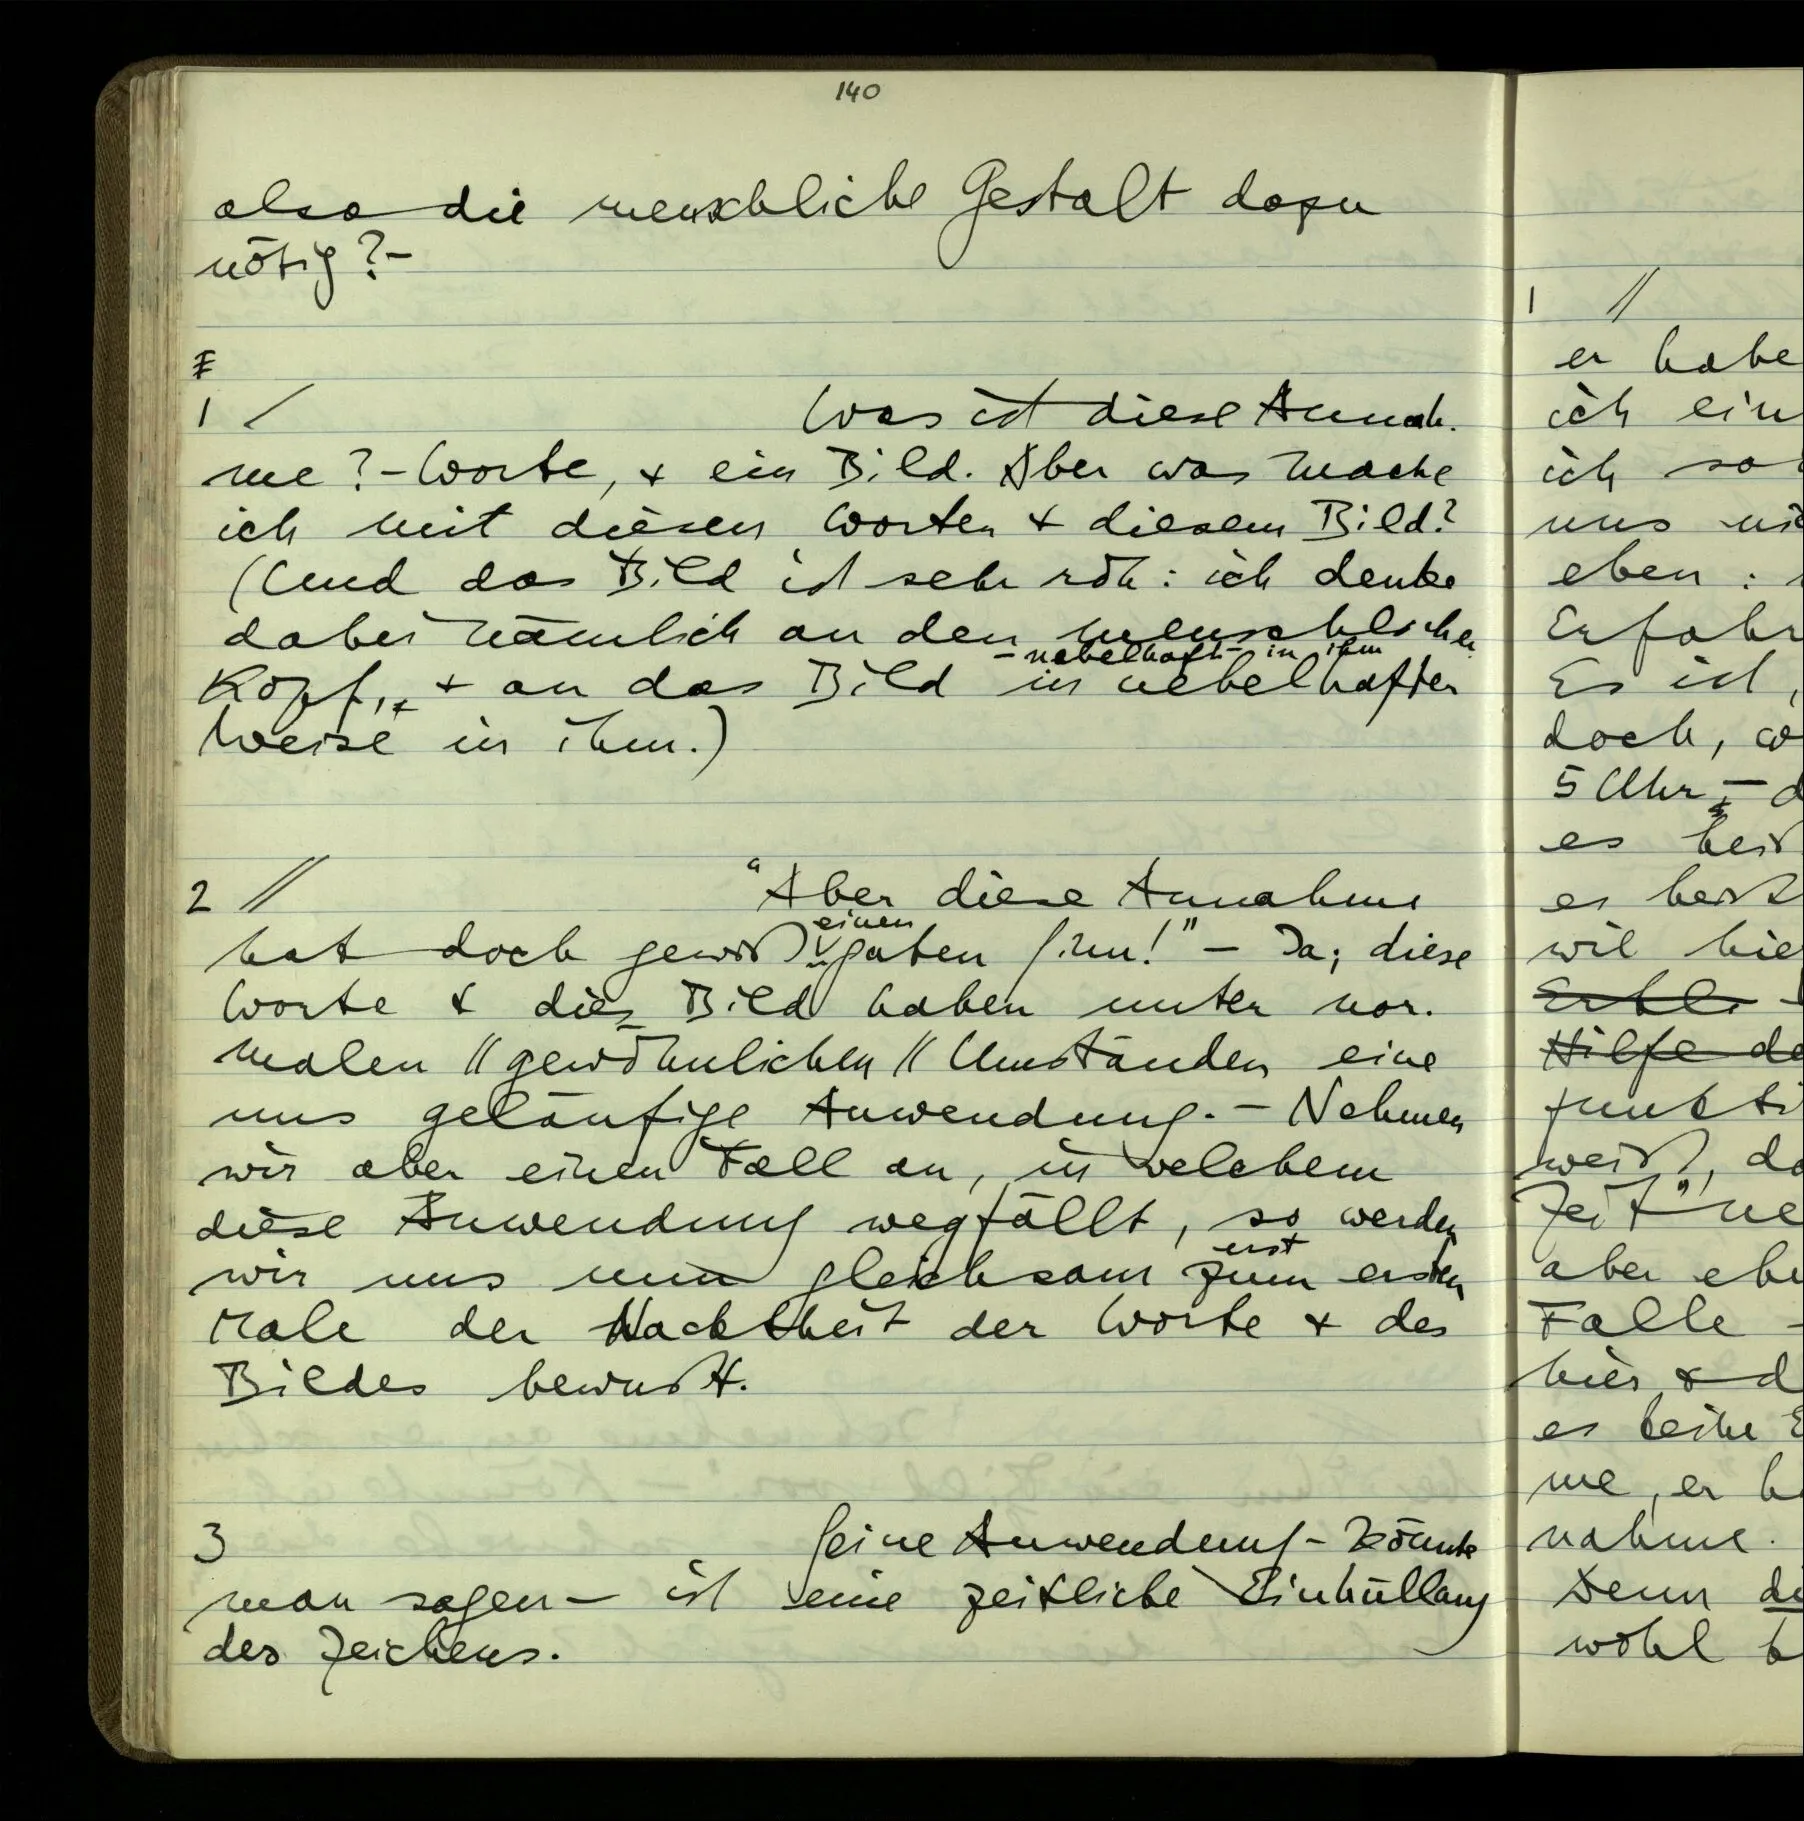 140
also die menschliche Gestalt dazu
nötig? –
1 /
Was ist diese Annah-
me? – Worte, & ein Bild. Aber was mache
ich mit diesen Worten & diesem Bild?
(Und das Bild ist sehr roh: ich denke
dabei nämlich an den menschlichen
– nebelhaft – in ihm
Kopf, & an das Bild in nebelhafter
Weise in ihm.)
2 //
“Aber diese Annahme
einen
hat doch gewiß guten Sinn!” – Ja; diese
Worte & dies Bild haben unter nor-
malen // gewöhnlichen // Umständen eine
uns geläufige Anwendung. – Nehmen
wir aber einen Fall an, in welchem
diese Anwendung wegfällt, so werden
erst
wir uns nun gleichsam zum ersten
Male der Nacktheit der Worte & des
Bildes bewußt.
3
Seine Anwendung – könnte
man sagen – ist eine zeitliche Einhüllung
des Zeichens.
1 //
er habe
ich ein
ich
uns
eben :
Es ist,
doch,
5 Uhr –
es
es heißt
wil hie
Hilfe de
aber ebe
Falle –
hier & d
es keine
me, er
nahme.
Denn
wohl